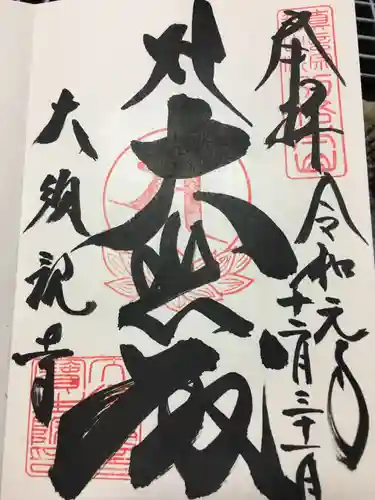 奉拝
令和元年
十二月三十一日
大悲殿
大須観音